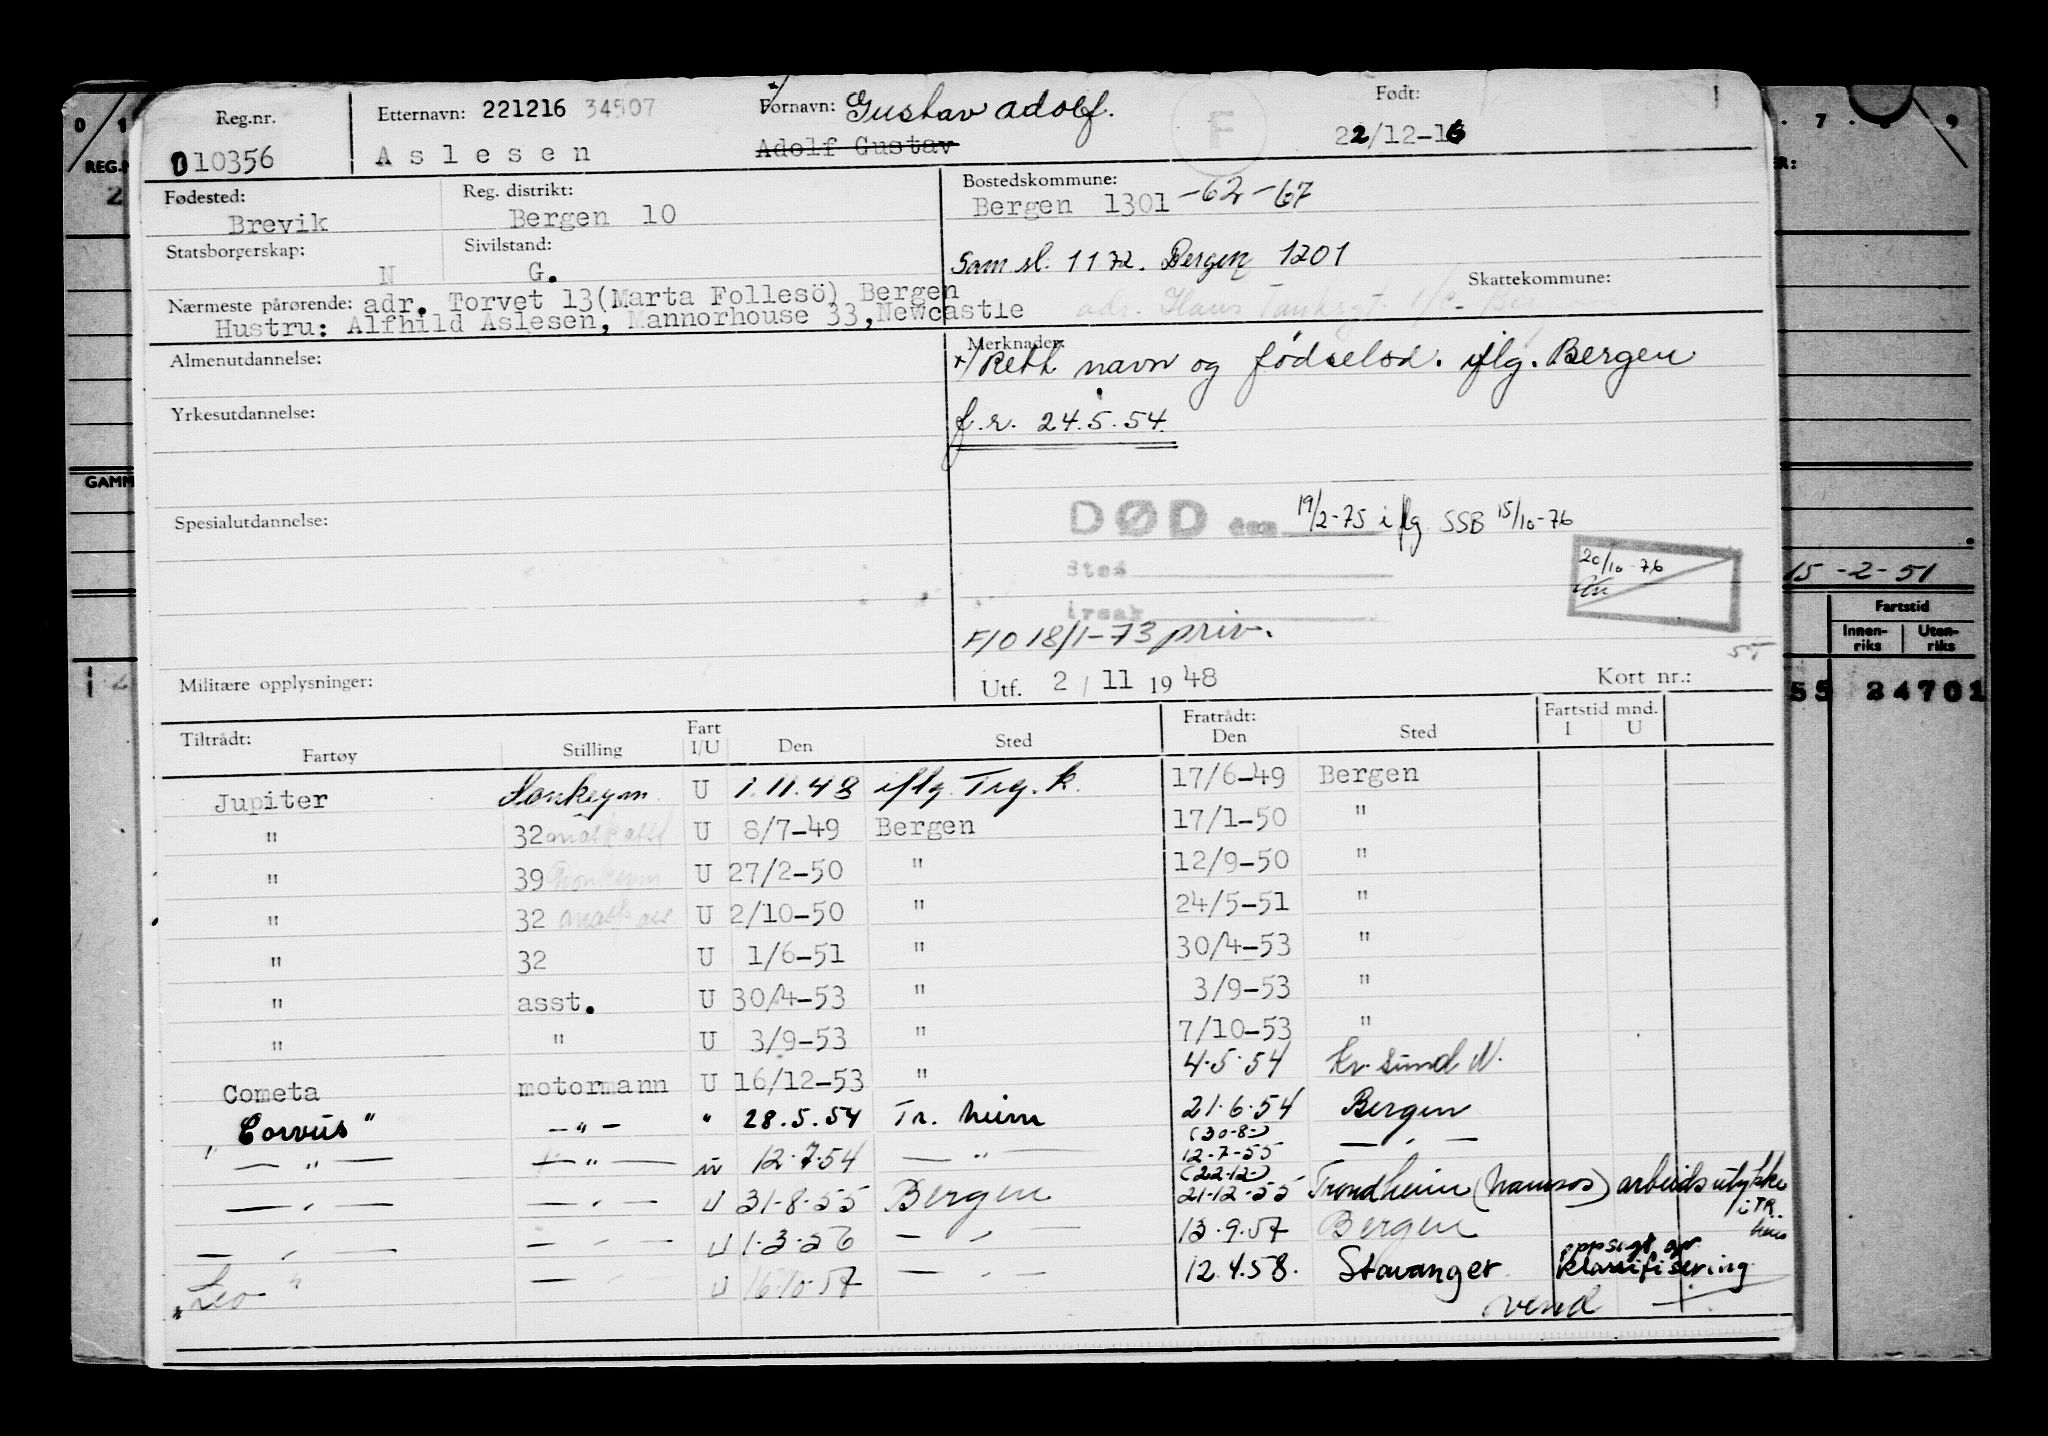 Reg.nr. Etternavn: 221216 34507 x/ Fornavn: Gustav Adolf. Født:
010356 Aslesen Adolf Gustav F 22/12-16
Fødested: Reg. distrikt: Bostedskommune:
Brevik Bergen 10 Bergen 1301 -62-67
Statsborgerskap: Sivilstand:
N G. Sam sl. 1172. Bergen 1201
Skattekommune:
Nærmeste pårørende: adr. Torvet 13(Marta Follesö) Bergen
Hustru: Alfhild Aslesen, Mannorhouse 33, Newcastle
Almenutdannelse: Merknader:
x/ Rett navn og fødselsd. iflg. Bergen
Yrkesutdannelse:
f.r. 24.5.54.
Spesialutdannelse:
DØD den 19/2-75 iflg SSB 15/10-76
Sted
20/10-76
årsak
F/O 18/1-73 priv.
Militære opplysninger: Utf. 2 / 11 19 48 Kort nr.:
Tiltrådt: Fart Fratrådt: Fartstid mnd.
Fartøy Stilling I/U Den Sted Den Sted I U
Jupiter Donkeym. U 1.11.48 iflg. Trg.k. 17/6-49 Bergen
" 32 mask asst U 8/7-49 Bergen 17/1-50 "
" 39 Donkeym U 27/2-50 " 12/9-50 "
" 32 mask ass. U 2/10-50 " 24/5-51 "
" 32 U 1/6-51 " 30/4-53 "
" asst. U 30/4-53 " 3/9-53 "
" " U 3/9-53 " 7/10-53 "
Cometa motormann U 16/12-53 " 4.5.54 Kr. sund N.
"Corvus" -"- " 28.5.54 Tr. heim 21.6.54 Bergen
(30-8-)
— " — — " — U 12.7.54 — " — 12-7-55 — " —
(22-12-)
— " — — " — U 31-8-55 Bergen 21-12-55 Trondheim (Namsos) arbeidsulykke
i TR.
heim
— " — — " — U 1.3.56 — " — 13.9.57 Bergen
oppsigt. gr.
"Leo" — " — U 16.10.57 — " — 12.4.58. Stavanger klassifisering
vend
0 1 7 . 8 . 9
REG.N
2
GAMM
15 -2-51
Fartstid
Innen-
riks
Uten-
riks
55 24701